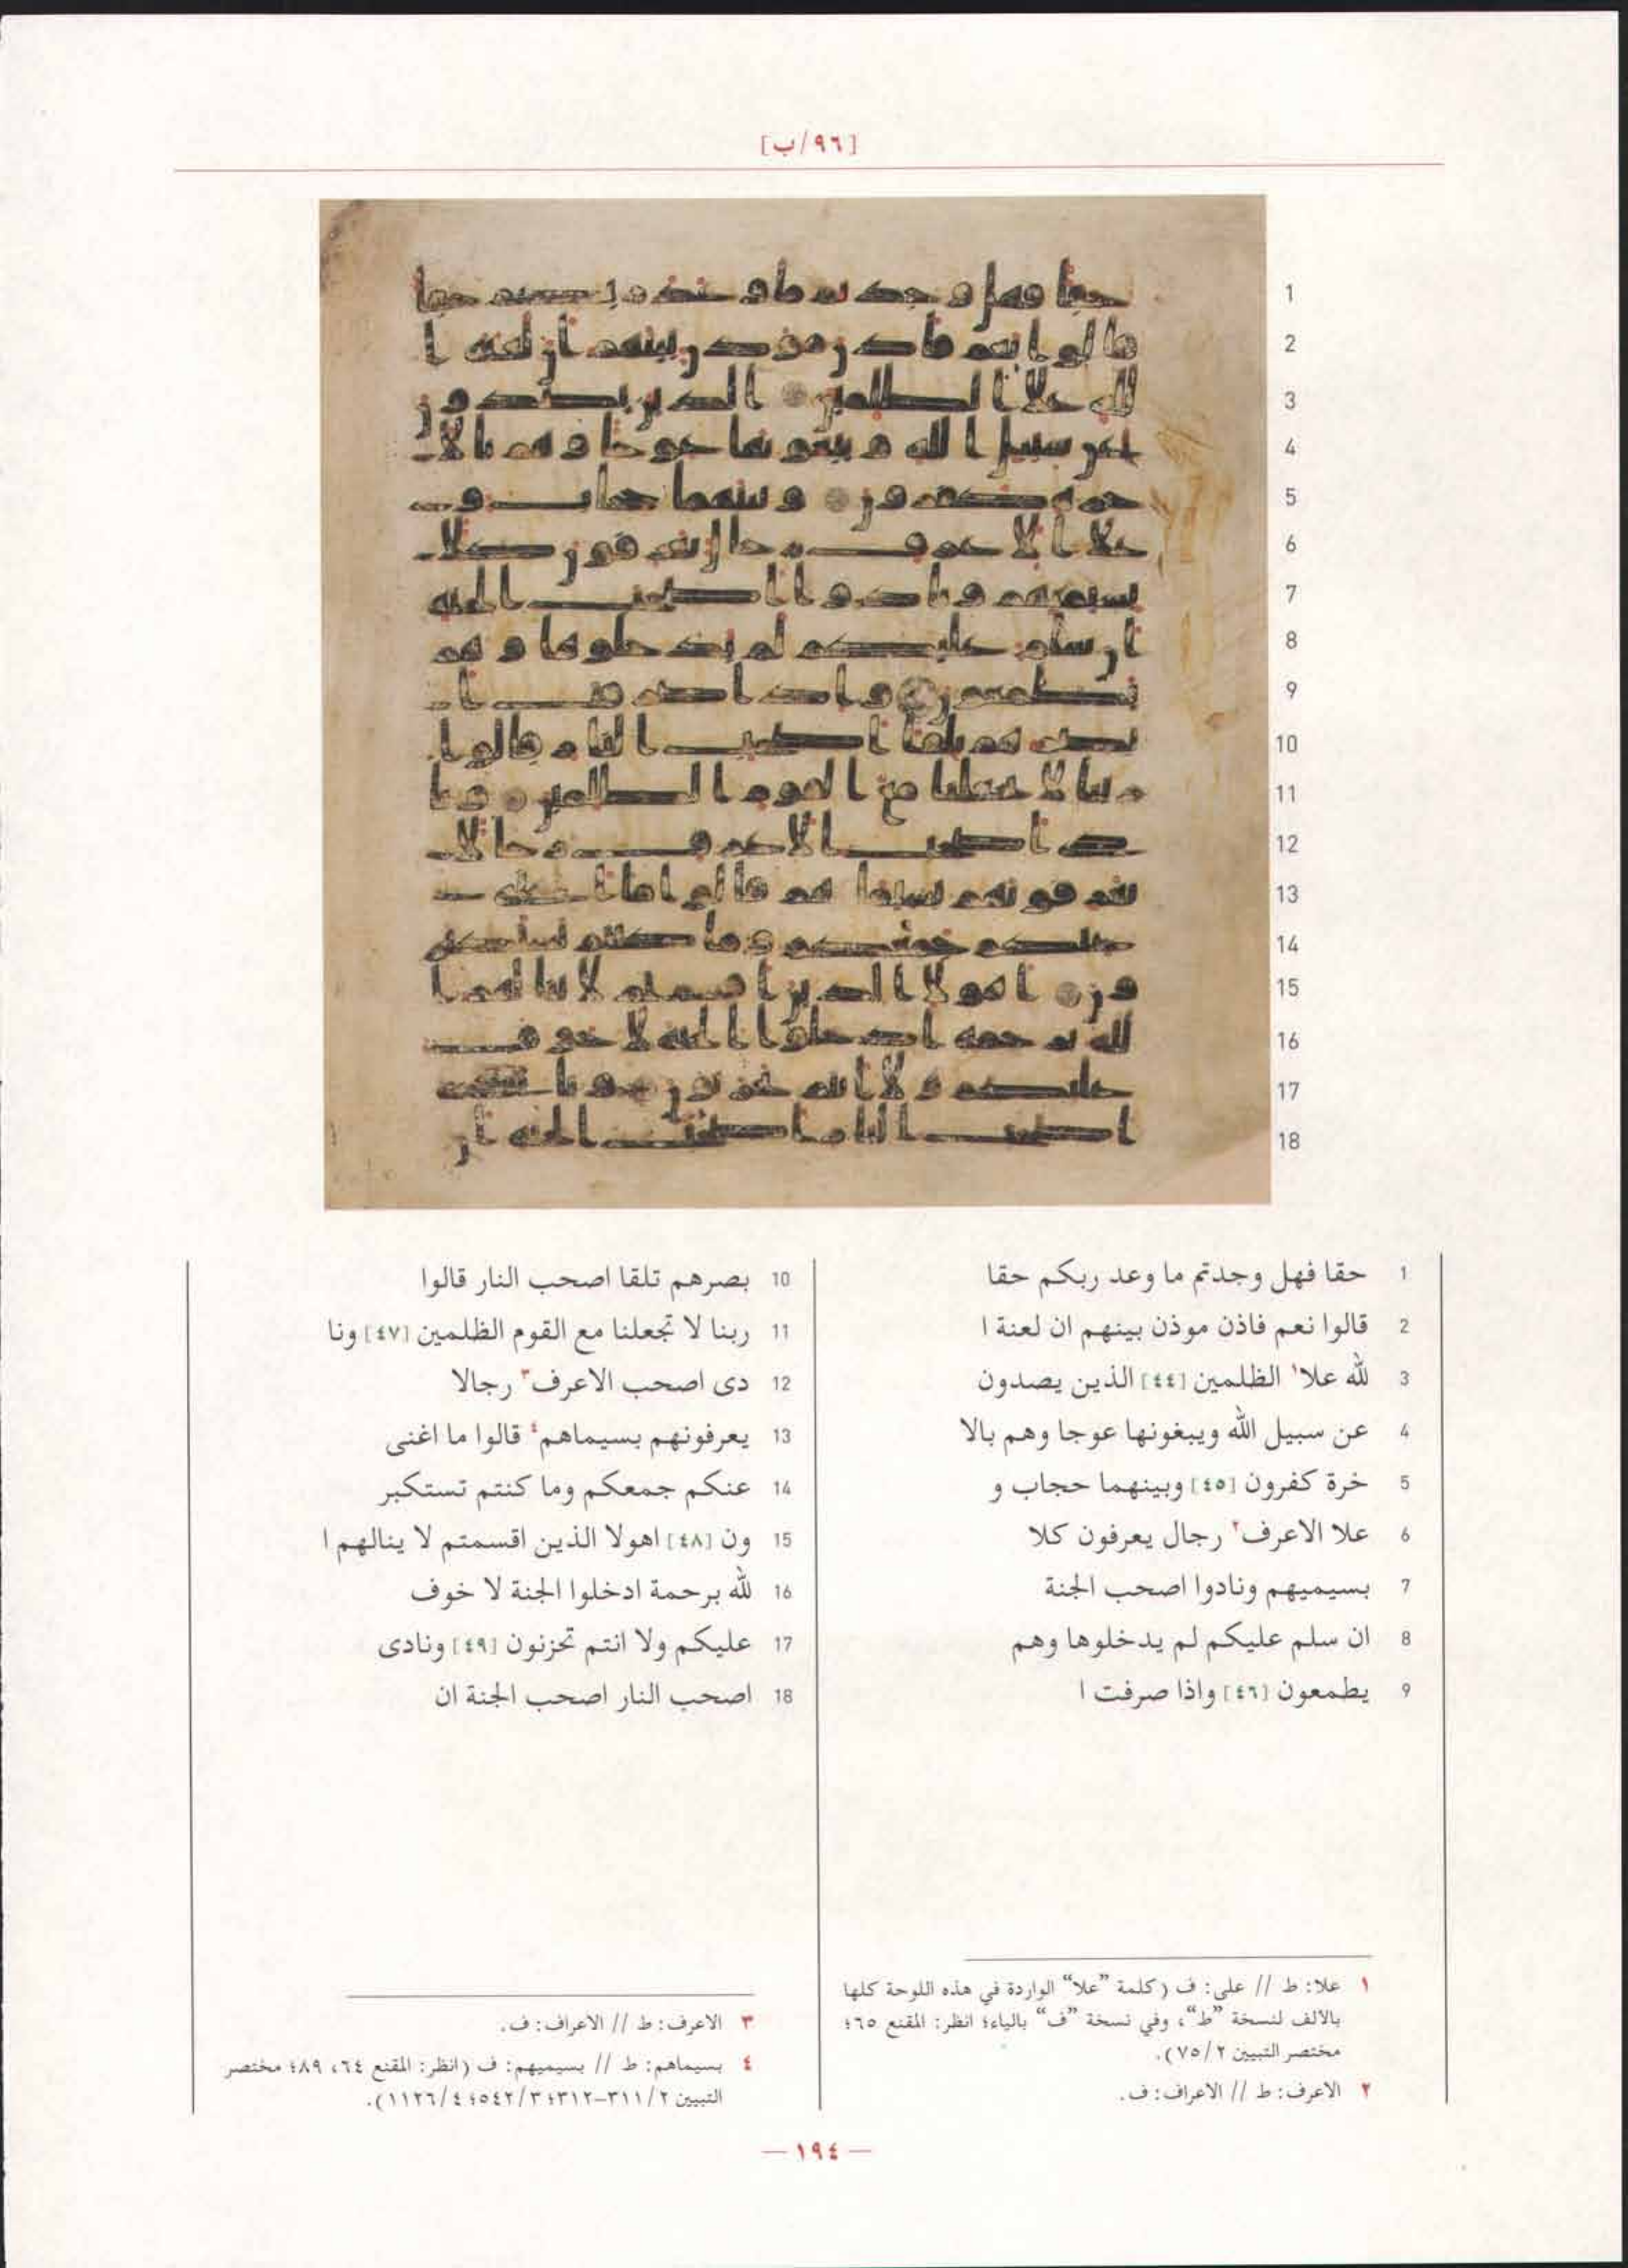 [٩٦/ب]
1 حقا فهل وجدتم ما وعد ربكم حقا
2 قالوا نعم فاذن موذن بينهم ان لعنة ا
3 لله علا١ الظلمين [٤٤] الذين يصدون
4 عن سبيل الله ويبغونها عوجا وهم بالا
5 خرة كفرون [٤٥] وبينهما حجاب و
6 علا الاعرف٢ رجال يعرفون كلا
7 بسيميهم ونادوا اصحب الجنة
8 ان سلم عليكم لم يدخلوها وهم
9 يطمعون [٤٦] واذا صرفت ا
10 بصرهم تلقا اصحب النار قالوا
11 ربنا لا تجعلنا مع القوم الظلمين [٤٧] ونا
12 دى اصحب الاعرف٣ رجالا
13 يعرفونهم بسيماهم٤ قالوا ما اغنى
14 عنكم جمعكم وما كنتم تستكبر
15 ون [٤٨] اهولا الذين اقسمتم لا ينالهم ا
16 لله برحمة ادخلوا الجنة لا خوف
17 عليكم ولا انتم تحزنون [٤٩] ونادى
18 اصحب النار اصحب الجنة ان
١ علا: ط // على: ف (كلمة "علا" الواردة في هذه اللوحة كلها
بالألف لنسخة "ط"، وفي نسخة "ف" بالياء؛ انظر: المقنع ٦٥؛
مختصر التبيين ٧٥/٢).
٢ الاعرف: ط // الاعراف: ف.
٣ الاعرف: ط // الأعراف: ف.
٤ بسيماهم: ط // بسيميهم: ف (انظر: المقنع ٦٤، ٨٩؛ مختصر
التبيين ٣١١/٢-٣١٢؛ ٥٤٢/٣؛ ١١٢٦/٤).
— ١٩٤ —